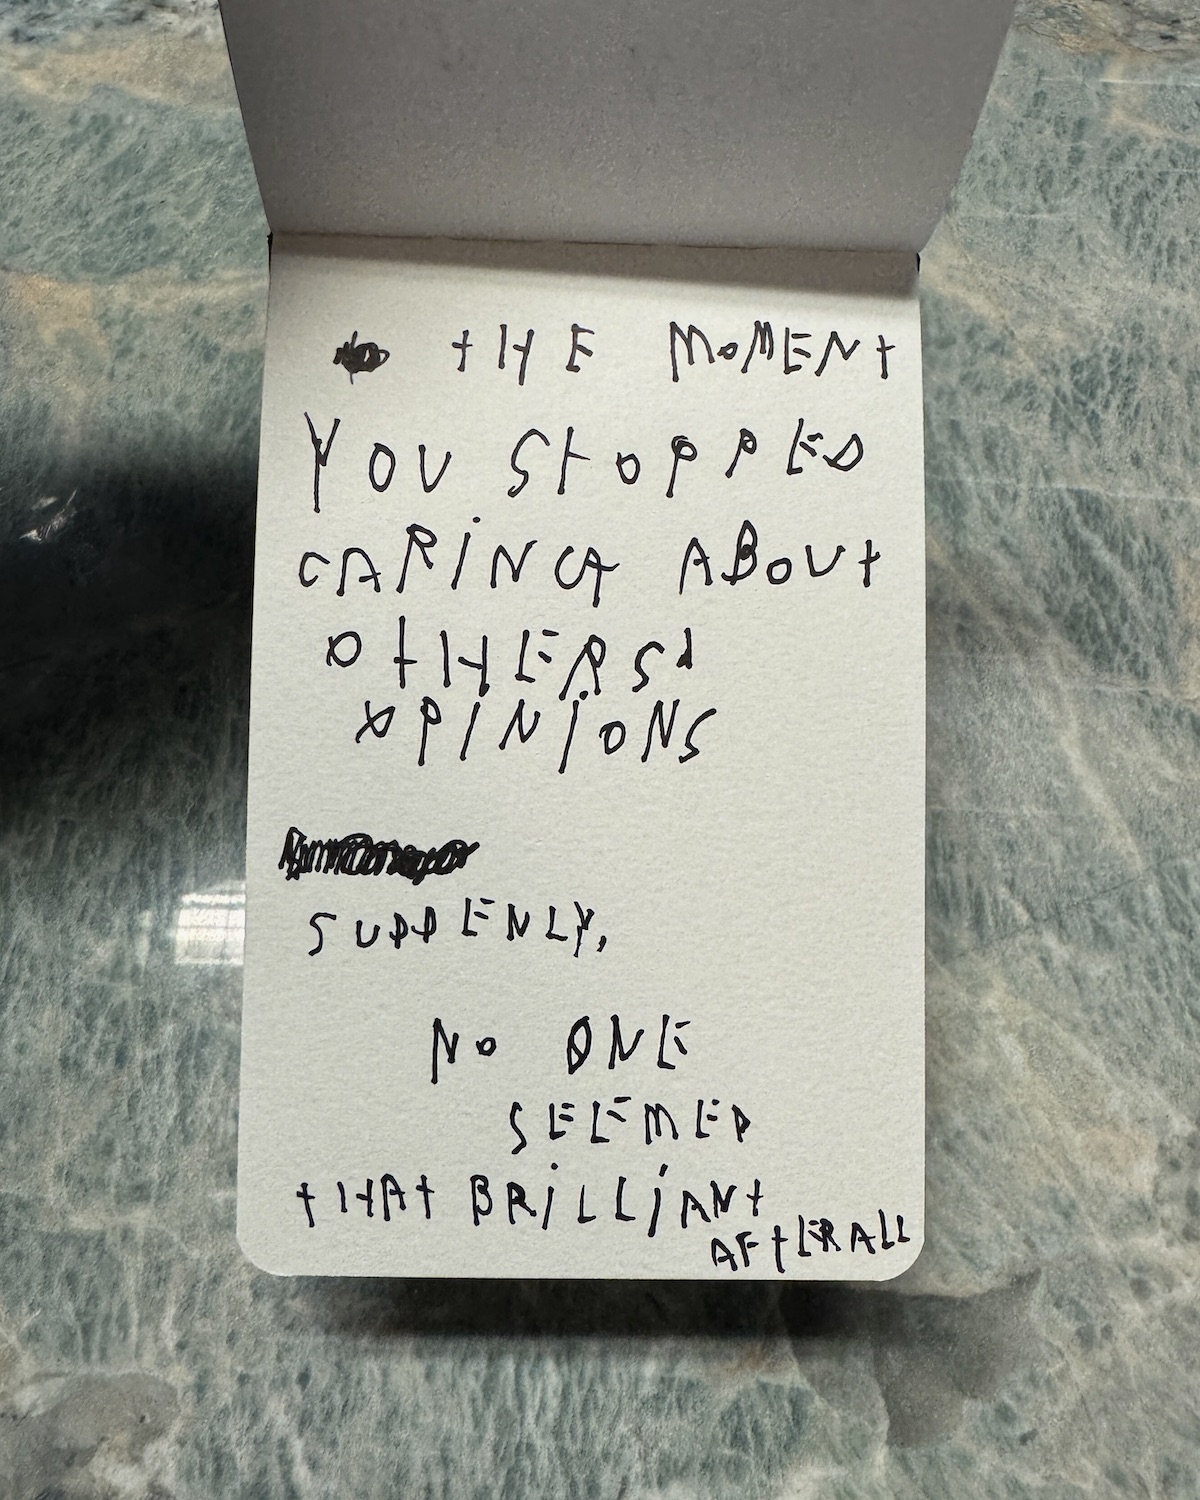 THE MOMENT
YOU STOPPED
CARING ABOUT
OTHERS'
OPINIONS
SUDDENLY,
NO ONE
SEEMED
THAT BRILLIANT
AFTER ALL